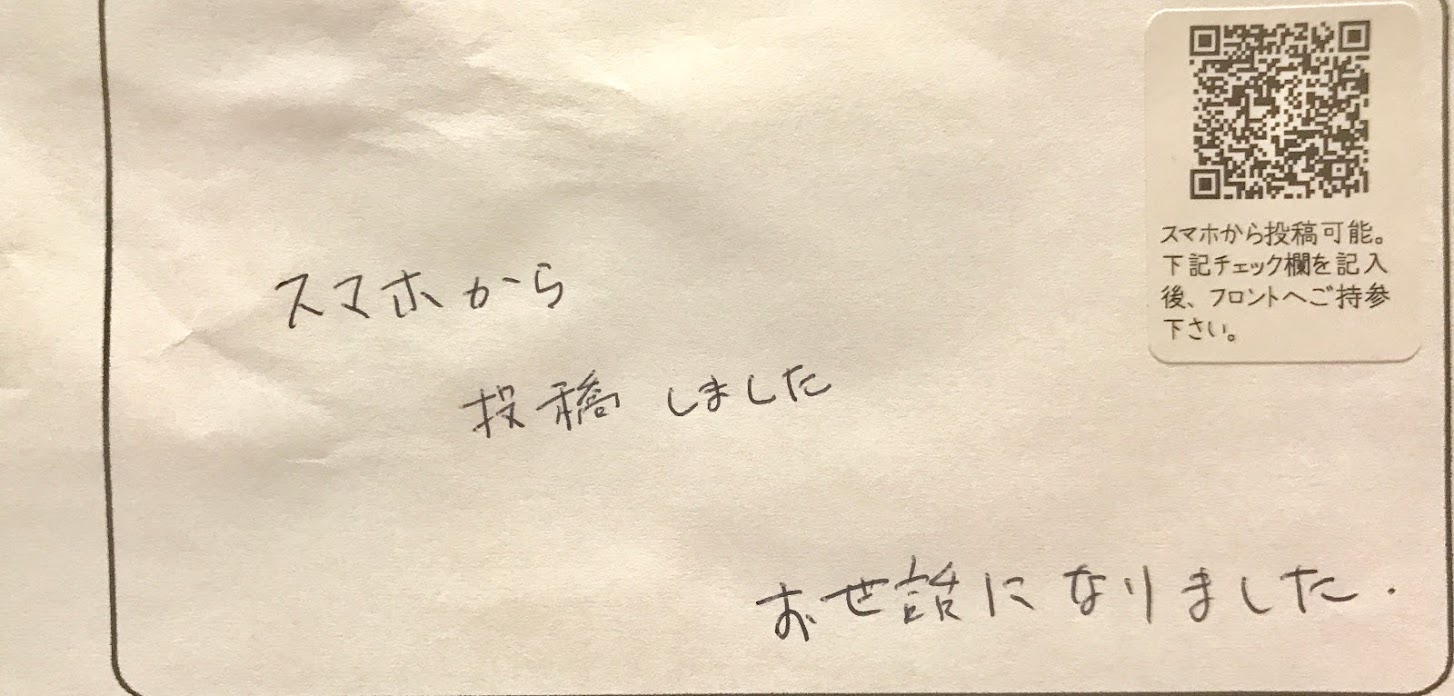 スマホから投稿可能。
下記チェック欄を記入
後、フロントへご持参
下さい。
スマホから
投稿しました
お世話になりました.